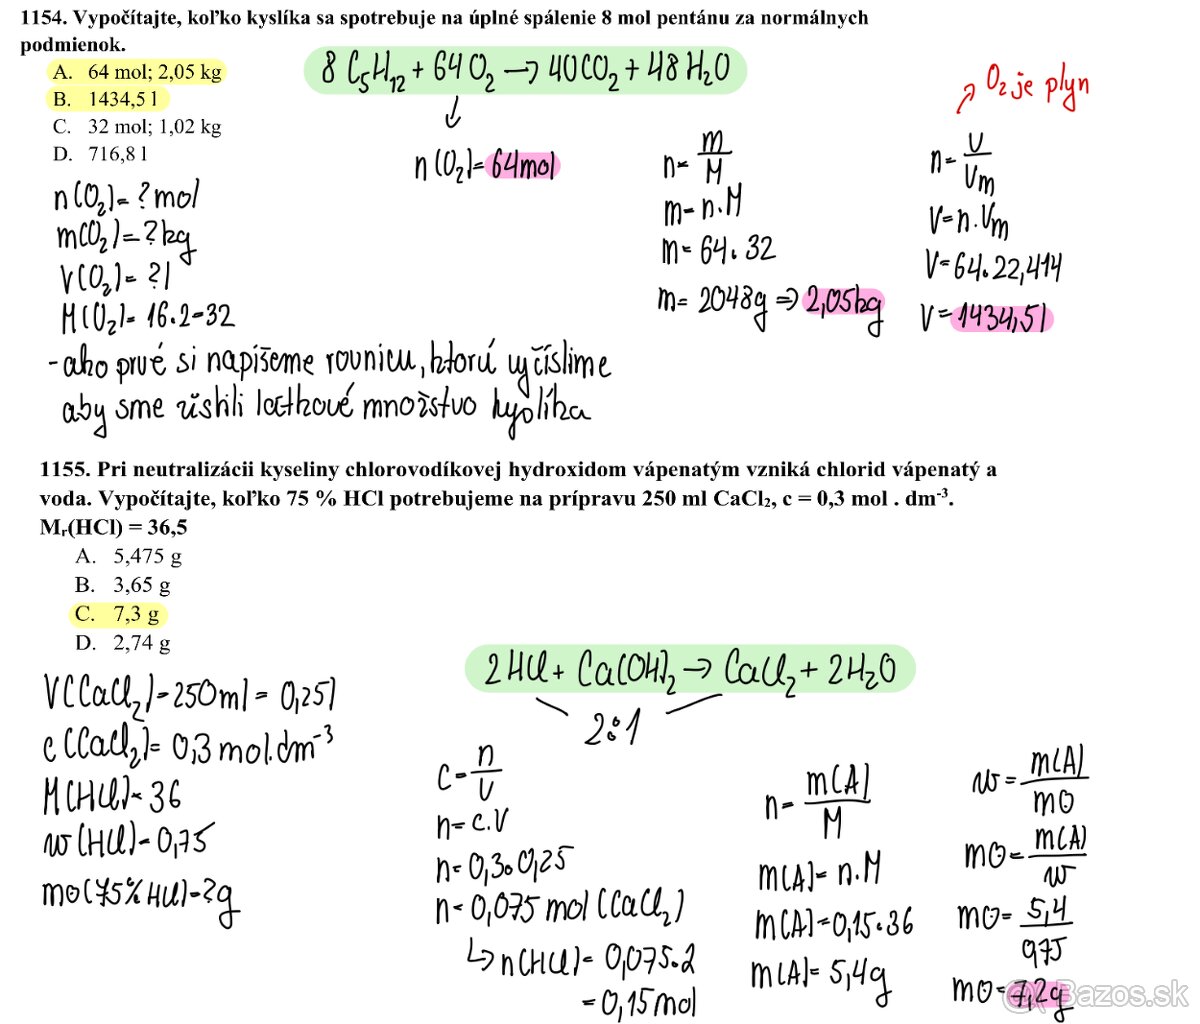 1154. Vypočítajte, koľko kyslíka sa spotrebuje na úplné spálenie 8 mol pentánu za normálnych
podmienok.
A. 64 mol; 2,05 kg
B. 1434,5 l
C. 32 mol; 1,02 kg
D. 716,8 l
8 C₅H₁₂ + 64 O₂ → 40CO₂ + 48 H₂O
n(O₂) = 64mol
n(O₂) = ? mol
m(O₂) = ? kg
V(O₂) = ? l
M(O₂) = 16.2 = 32
n = m/M
m = n.M
m = 64.32
m = 2048g ⇒ 2,05kg
O₂ je plyn
n = V/Vm
V = n.Vm
V = 64.22,414
V = 1434,5l
- ako prvé si napíšeme rovnicu, ktorú vyčíslime
aby sme získili látkové množstvo kyslíka
1155. Pri neutralizácii kyseliny chlorovodíkovej hydroxidom vápenatým vzniká chlorid vápenatý a
voda. Vypočítajte, koľko 75 % HCl potrebujeme na prípravu 250 ml CaCl₂, c = 0,3 mol . dm⁻³.
Mᵣ(HCl) = 36,5
A. 5,475 g
B. 3,65 g
C. 7,3 g
D. 2,74 g
2HCl + Ca(OH)₂ → CaCl₂ + 2H₂O
2:1
V(CaCl₂) = 250ml = 0,25l
c(CaCl₂) = 0,3 mol.dm⁻³
M(HCl) = 36
w(HCl) = 0,75
m⊙(75% HCl) = ? g
c = n/V
n = c.V
n = 0,3.0,25
n = 0,075 mol (CaCl₂)
↳ n(HCl) = 0,075.2
= 0,15 mol
n = m(A)/M
m(A) = n.M
m(A) = 0,15.36
m(A) = 5,4g
w = m(A)/m⊙
m⊙ = m(A)/w
m⊙ = 5,4/0,75
m⊙ = 7,2g
Bazos.sk